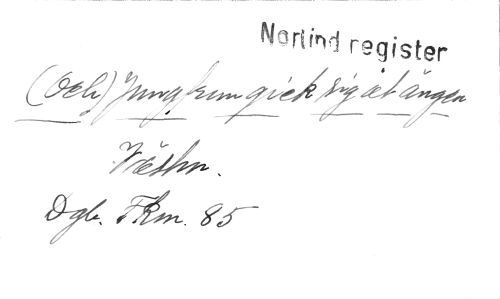 Norlind register
(Och) Jungfrun gick sig åt ängen
Västm.
Dgb. Fkm. 85